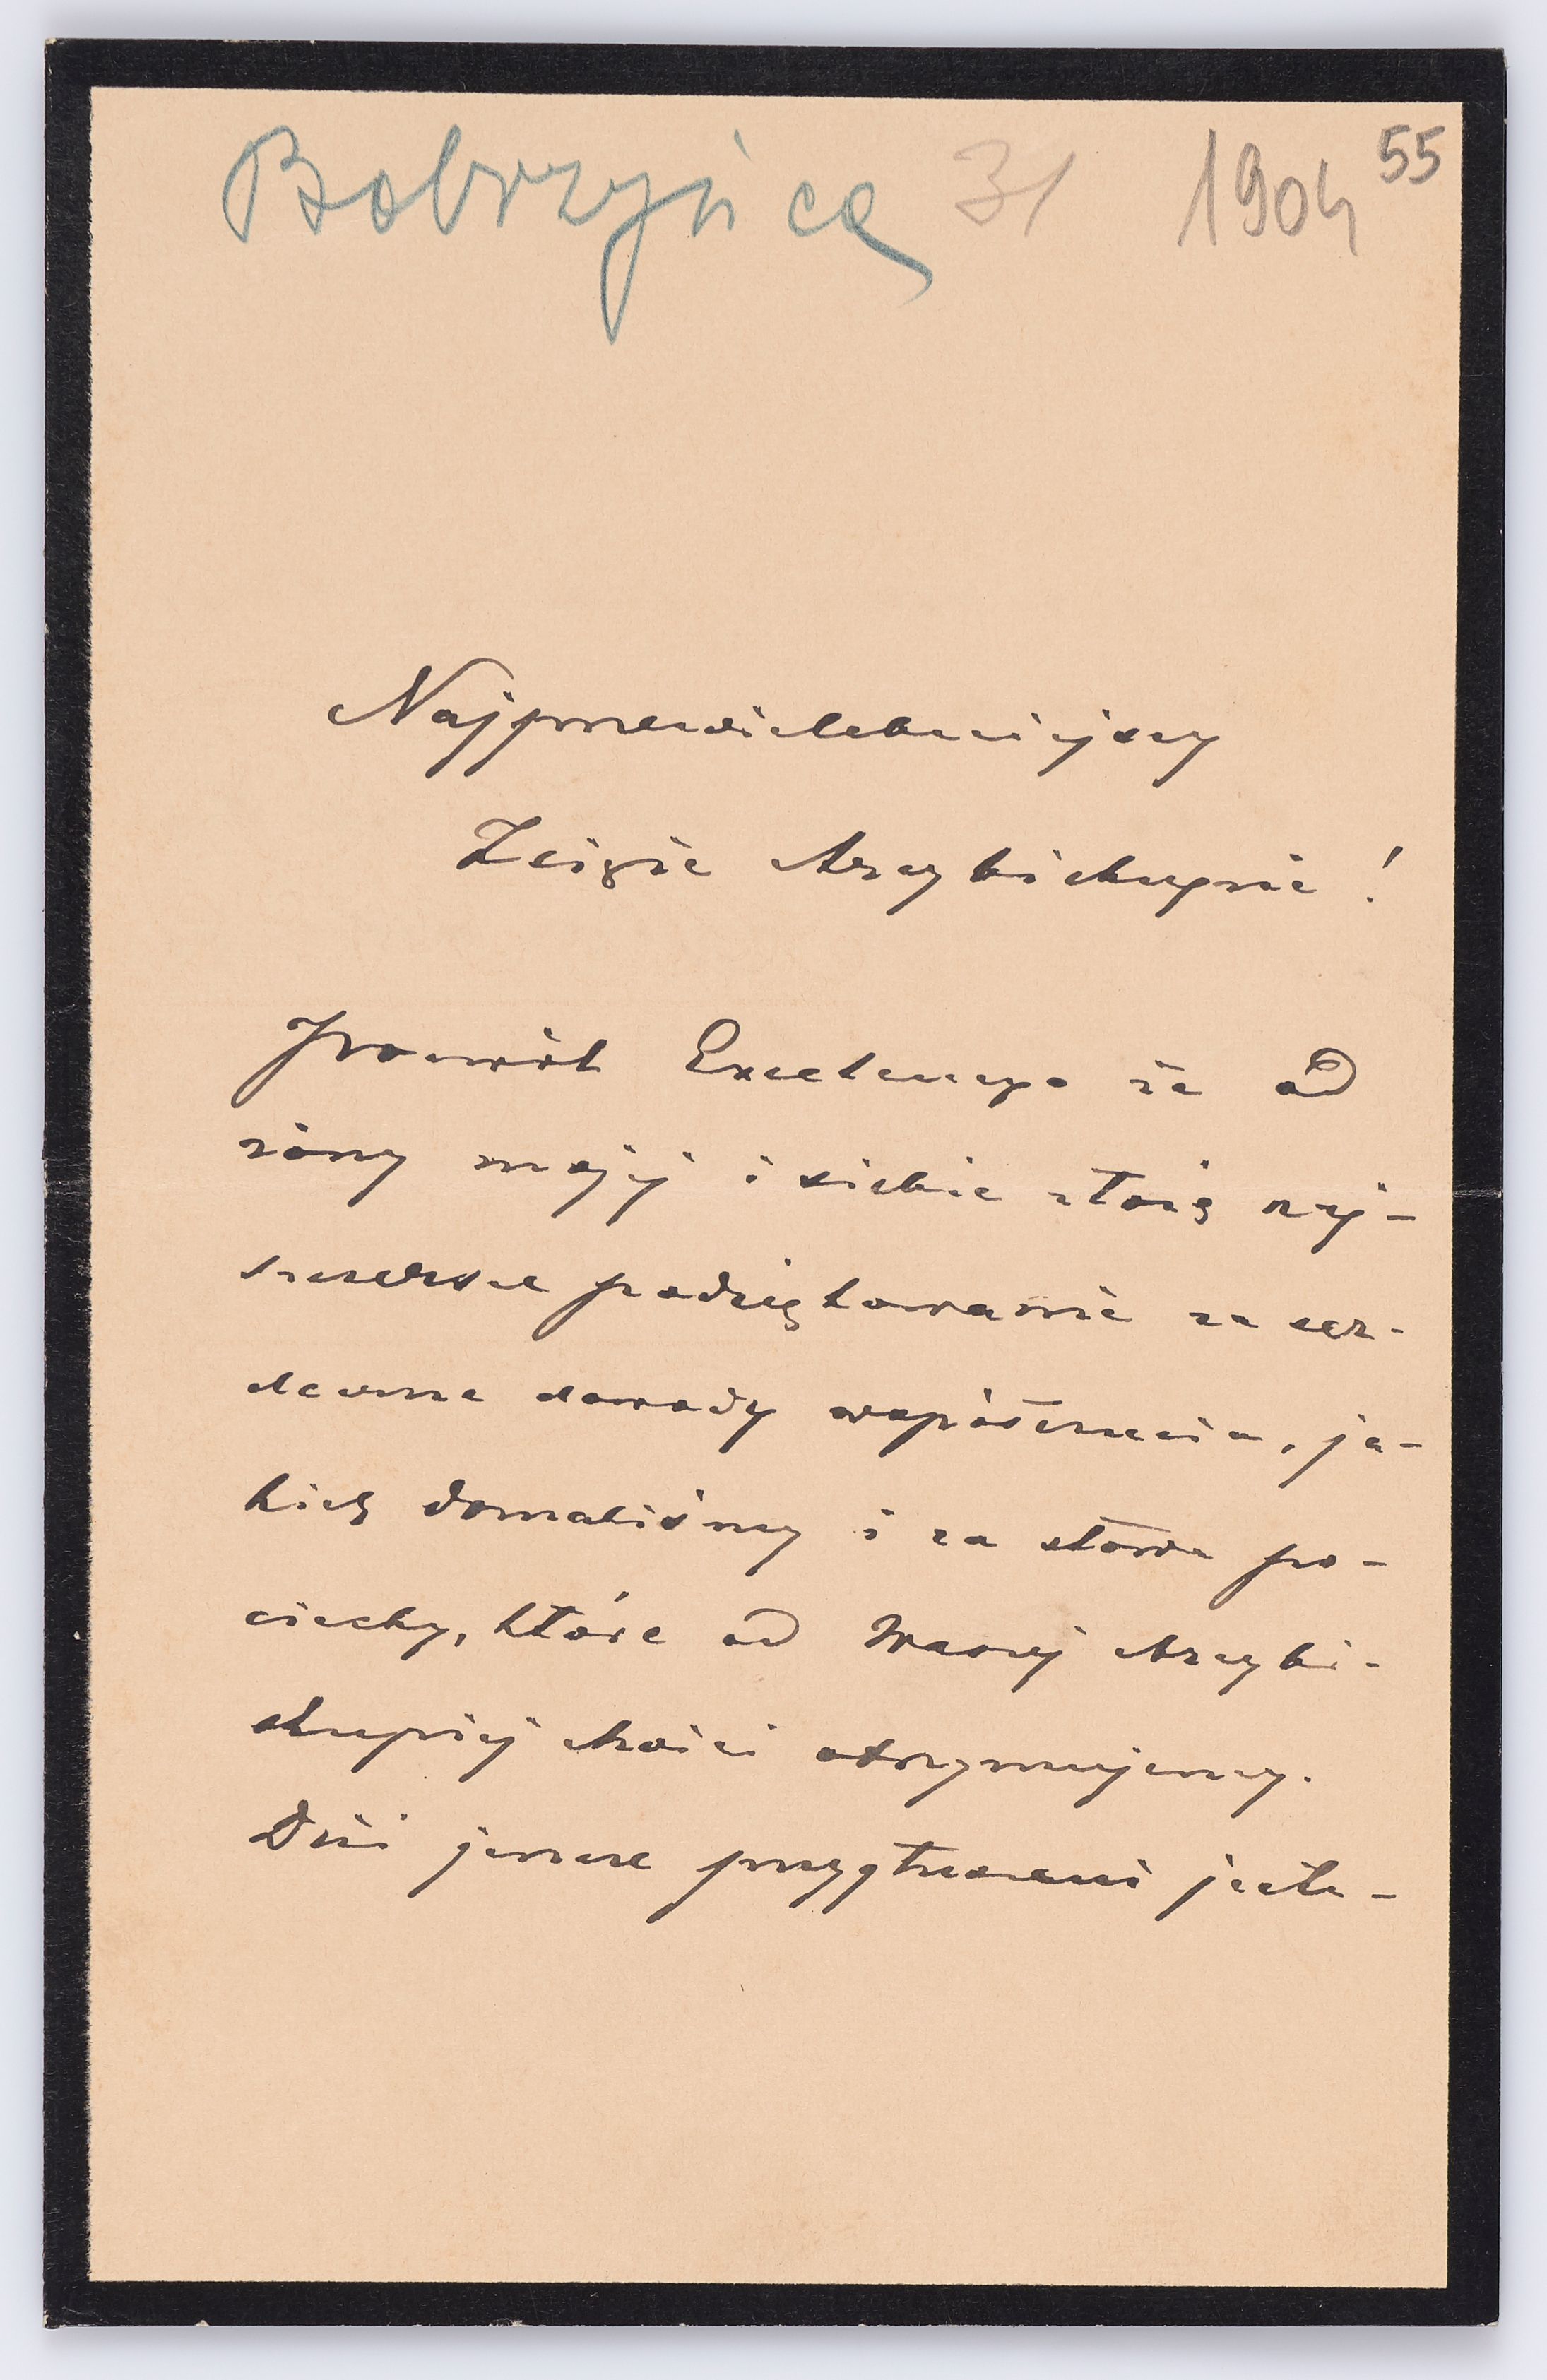 Bobrzyńca 31 1904 55
Najprzewielebniejszy
Księże Arcybiskupie!
Pozwól Excelencyo że od
żony mojej i siebie złożę naj-
szczersze podziękowanie za ser-
deczne dowody współczucia, ja-
kich doznaliśmy i za słowa po-
ciechy, które od Waszej Arcybi-
skupiej Mości otrzymujemy.
Dziś jeszcze przygnieceni jeste-